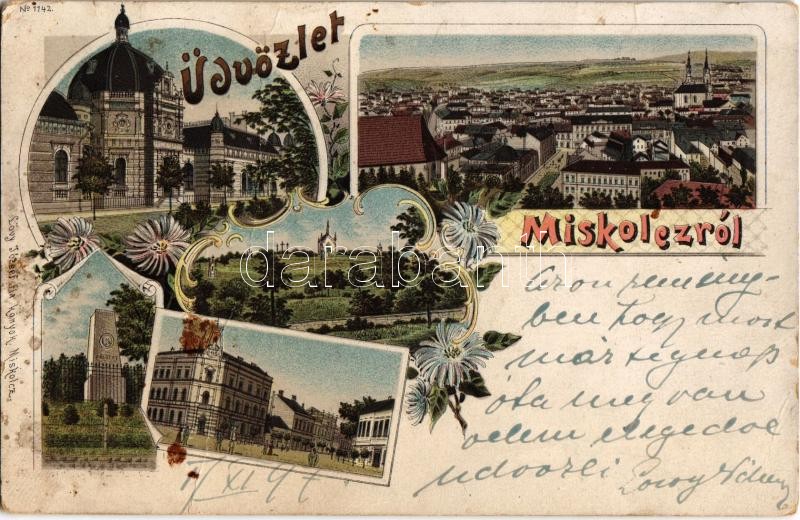 No 1142.
Üdvözlet
Miskolczról
Lövy József fia könyvk. Miskolcz.
darabanth
Azon remény-
ben hogy most
már tegnap
óta meg van
velem elégedve
üdvözli
7/XI 97